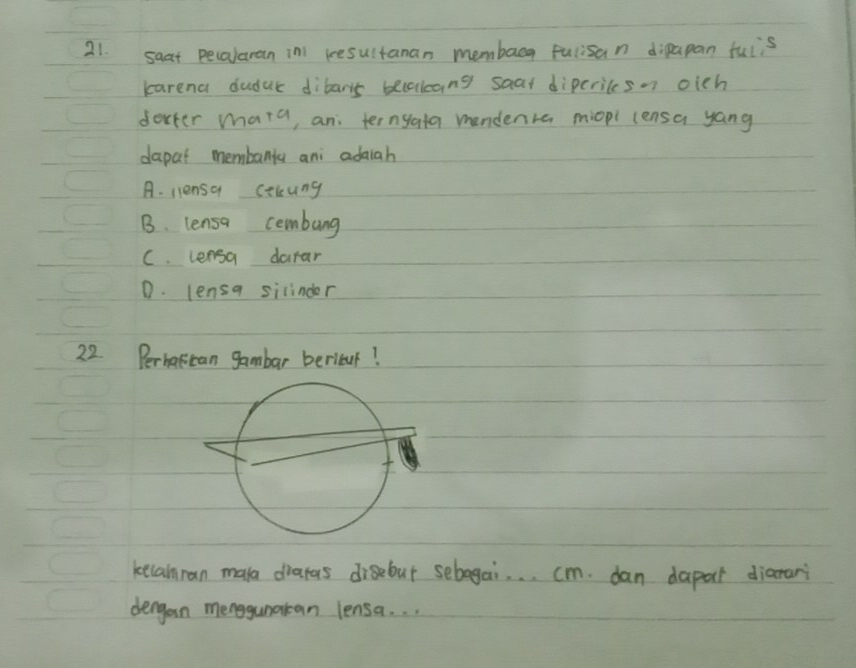 21. saat pelajaran ini kesulitanan membaca tulisan dipapan tulis
karena duduk dibaris belakang saat diperiksan oleh
dokter mata, ani ternyata menderita miopi lensa yang
dapat membantu ani adalah
A. llensa cekung
B. lensa cembung
C. lensa datar
D. lensa silinder
22. Perhatikan gambar berikut !
kelahiran mata diatas disebut sebagai... cm. dan dapat diatari
dengan menggunakan lensa...